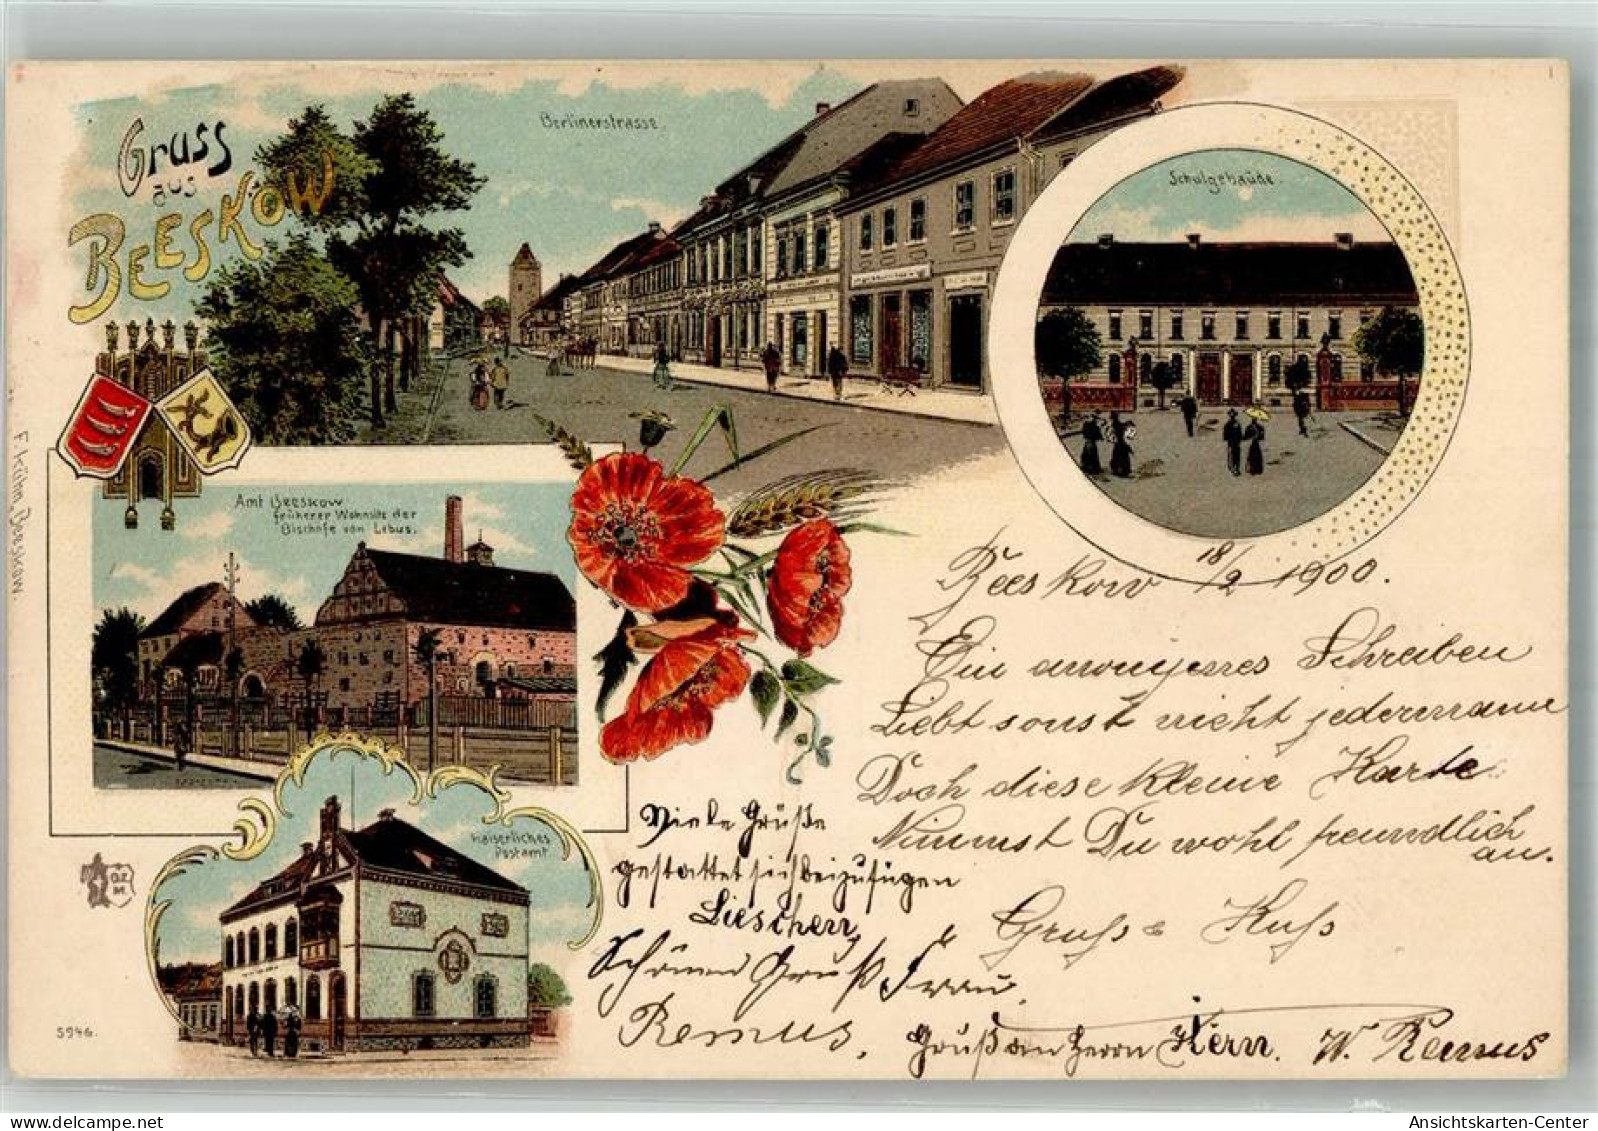 Gruss
aus
BEESKOW
Berlinerstrasse.
Schulgebäude.
Amt Beeskow
früherer Wohnsitz der
Bischöfe von Lebus.
Kaiserliches
Postamt.
F. Kühn, Beeskow.
5946.
Beeskow 18/2 1900.
Ein Schreiben
Liebt sonst nicht jedermann
Doch diese kleine Karte
Nimmst Du wohl freundlich
an.
Gruß & Kuß
W. Remus
Viele Grüße
gestattet sich beizufügen
Schönen Gruß Frau
Remus,
Gruß an Herrn Kern.
Ansichtskarten-Center